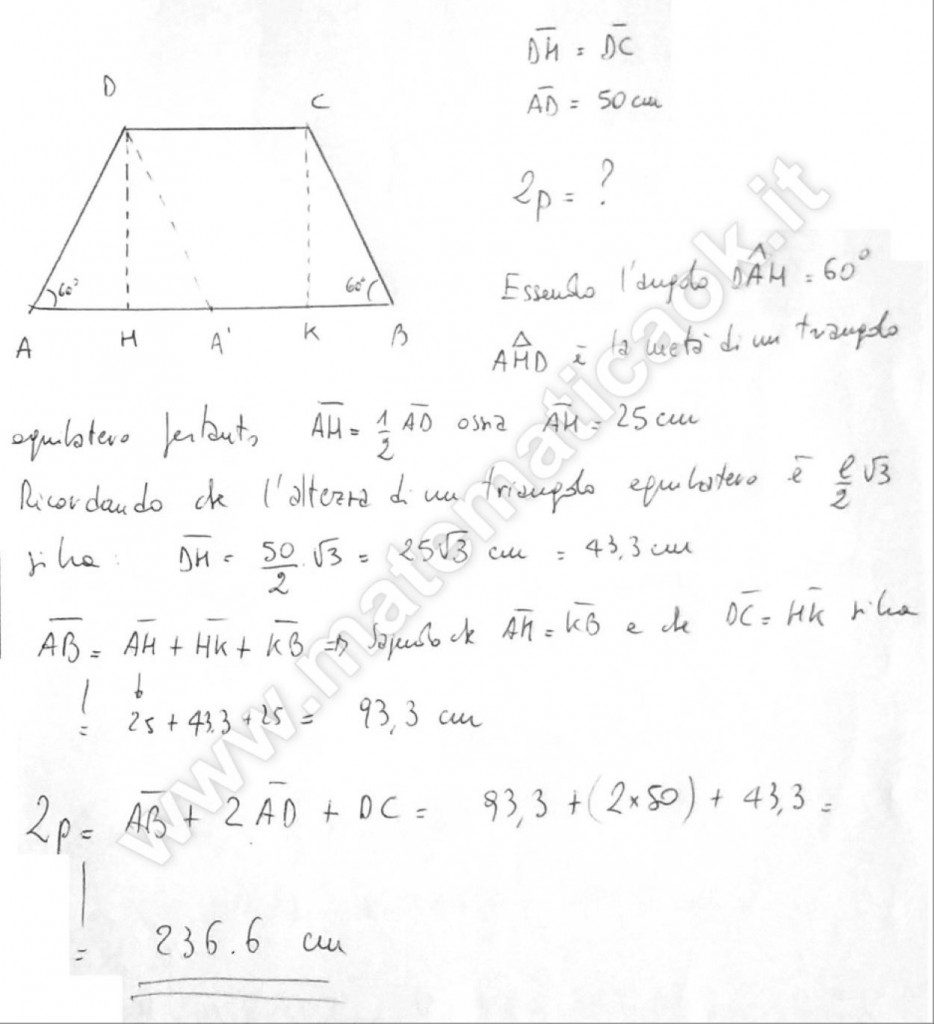 D̅H̅ = D̅C̅
A̅D̅ = 50 cm
2p = ?
D
C
60°
60°
A
H
A'
K
B
Essendo l'angolo DÂH = 60°
AHD è la metà di un triangolo
equilatero pertanto A̅H̅ = 1/2 A̅D̅ ossia A̅H̅ = 25 cm
Ricordando che l'altezza di un triangolo equilatero è l/2 √3
si ha: D̅H̅ = 50/2 · √3 = 25√3 cm = 43,3 cm
A̅B̅ = A̅H̅ + H̅K̅ + K̅B̅ ⇒ Sapendo che A̅H̅ = K̅B̅ e che D̅C̅ = H̅K̅ si ha
= 25 + 43,3 + 25 = 93,3 cm
2p = A̅B̅ + 2A̅D̅ + DC = 93,3 + (2×50) + 43,3 =
= 236.6 cm
www.matematicaok.it